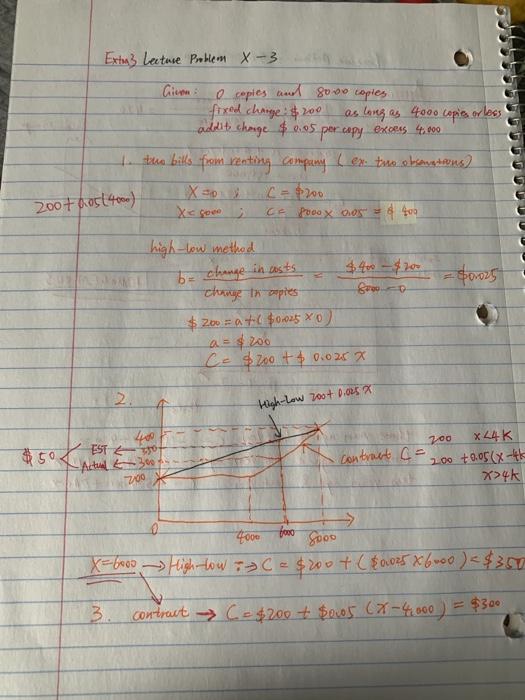 Extra3 Lecture Problem X-3
Given: 0 copies and 8000 copies
fixed charge: $200 as long as 4000 copies or less
addit charge $0.05 per copy excess 4,000
1. two bills from renting company (ex. two observations)
X=0 ; C=$200
200+0.05(4000)
X=8000 ; C= 8000 x 0.05 = $400
high-low method
b = change in costs / change in copies = $400-$200 / 8000-0 = $0.025
$200 = a+($0.025 x0)
a = $200
C = $200 + $0.025 x
2.
High-Low 200+0.025 X
400
$50 < EST ← 350
Actual ← 300
200
contract C = 200 x<4K
200 +0.05(x-4k) x>4k
0 4000 6000 8000
X=6000 → High-low :→ C = $200 + ($0.025 x6000) = $350
3. contract → C = $200 + $0.05 (x-4,000) = $300